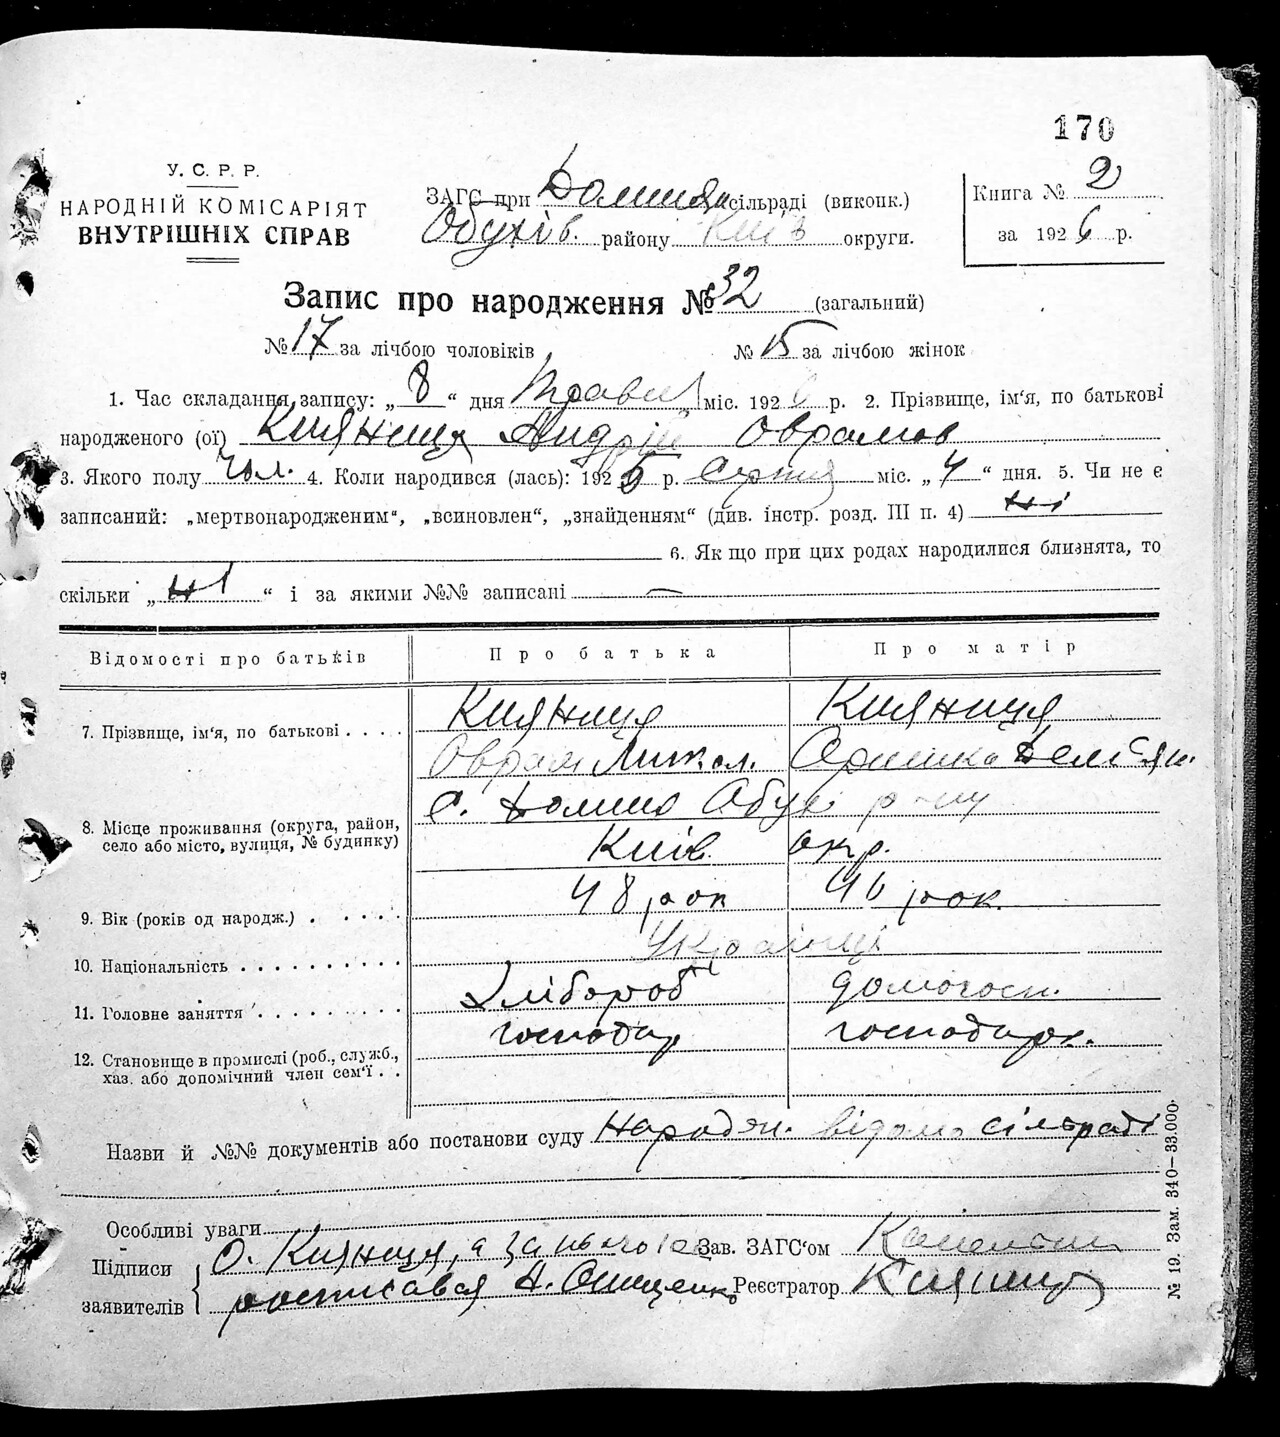 170
У. С. Р. Р.
НАРОДНІЙ КОМІСАРІЯТ
ВНУТРІШНІХ СПРАВ
ЗАГС при Долинян сільраді (виконк.)
Обухів. району Київ округи.
Книга № 2
за 1926 р.
Запис про народження № 32 (загальний)
№ 17 за лічбою чоловіків № 15 за лічбою жінок
1. Час складання запису: „8“ дня Травня міс. 1926 р. 2. Прізвище, ім'я, по батькові
народженого (ої) Кияниця Андрій Оврамов
3. Якого полу Чол. 4. Коли народився (лась): 1925 р. Серпня міс. „4“ дня. 5. Чи не є
записаний: „мертвонародженим“, „всиновлен“, „знайденням“ (див. інстр. розд. III п. 4) Ні
6. Як що при цих родах народилися близнята, то
скільки „Ні“ і за якими №№ записані —
Відомості про батьків Про батька Про матір
7. Прізвище, ім'я, по батькові . . . . Кияниця Кияниця
Оврам Микол. Оришка Дем'ян.
8. Місце проживання (округа, район, село або місто, вулиця, № будинку) с. Долина Обух р-ну
Київ. окр.
9. Вік (років од народж.) . . . . . 48 рок 46 рок.
10. Національність . . . . . . . . . . Українці
11. Головне заняття . . . . . . . . . Хлібороб домогосп.
12. Становище в промислі (роб., служб., хаз. або допомічний член сем'ї . . господар господарк.
Назви й №№ документів або постанови суду Народж. відомо сільраді
Особливі уваги
Підписи заявителів О. Кияниця, а за нього
росписався Н. Онищенко
Зав. ЗАГС'ом
Реєстратор Кияниця
№ 19. Зам. 340—33.000.